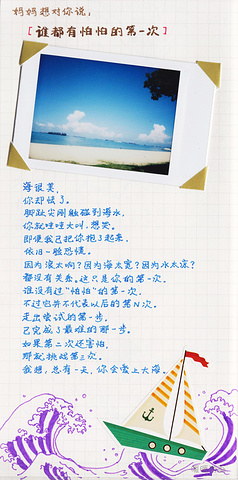 妈妈想对你说:
[谁都有怕怕的第一次]
海很美,
你却怯了。
脚趾尖刚触碰到海水,
你就哇哇大叫,想哭。
即便我已把你抱了起来,
依旧一脸恐慌。
因为浪太响?因为海太宽?因为水太凉?
都没有关系。这只是你的第一次。
谁没有过“怕怕”的第一次,
不过它并不代表以后的第N次。
走出尝试的第一步,
已完成了最难的那一步。
如果第二次还害怕,
那就挑战第三次。
我想,总有一天,你会爱上大海。